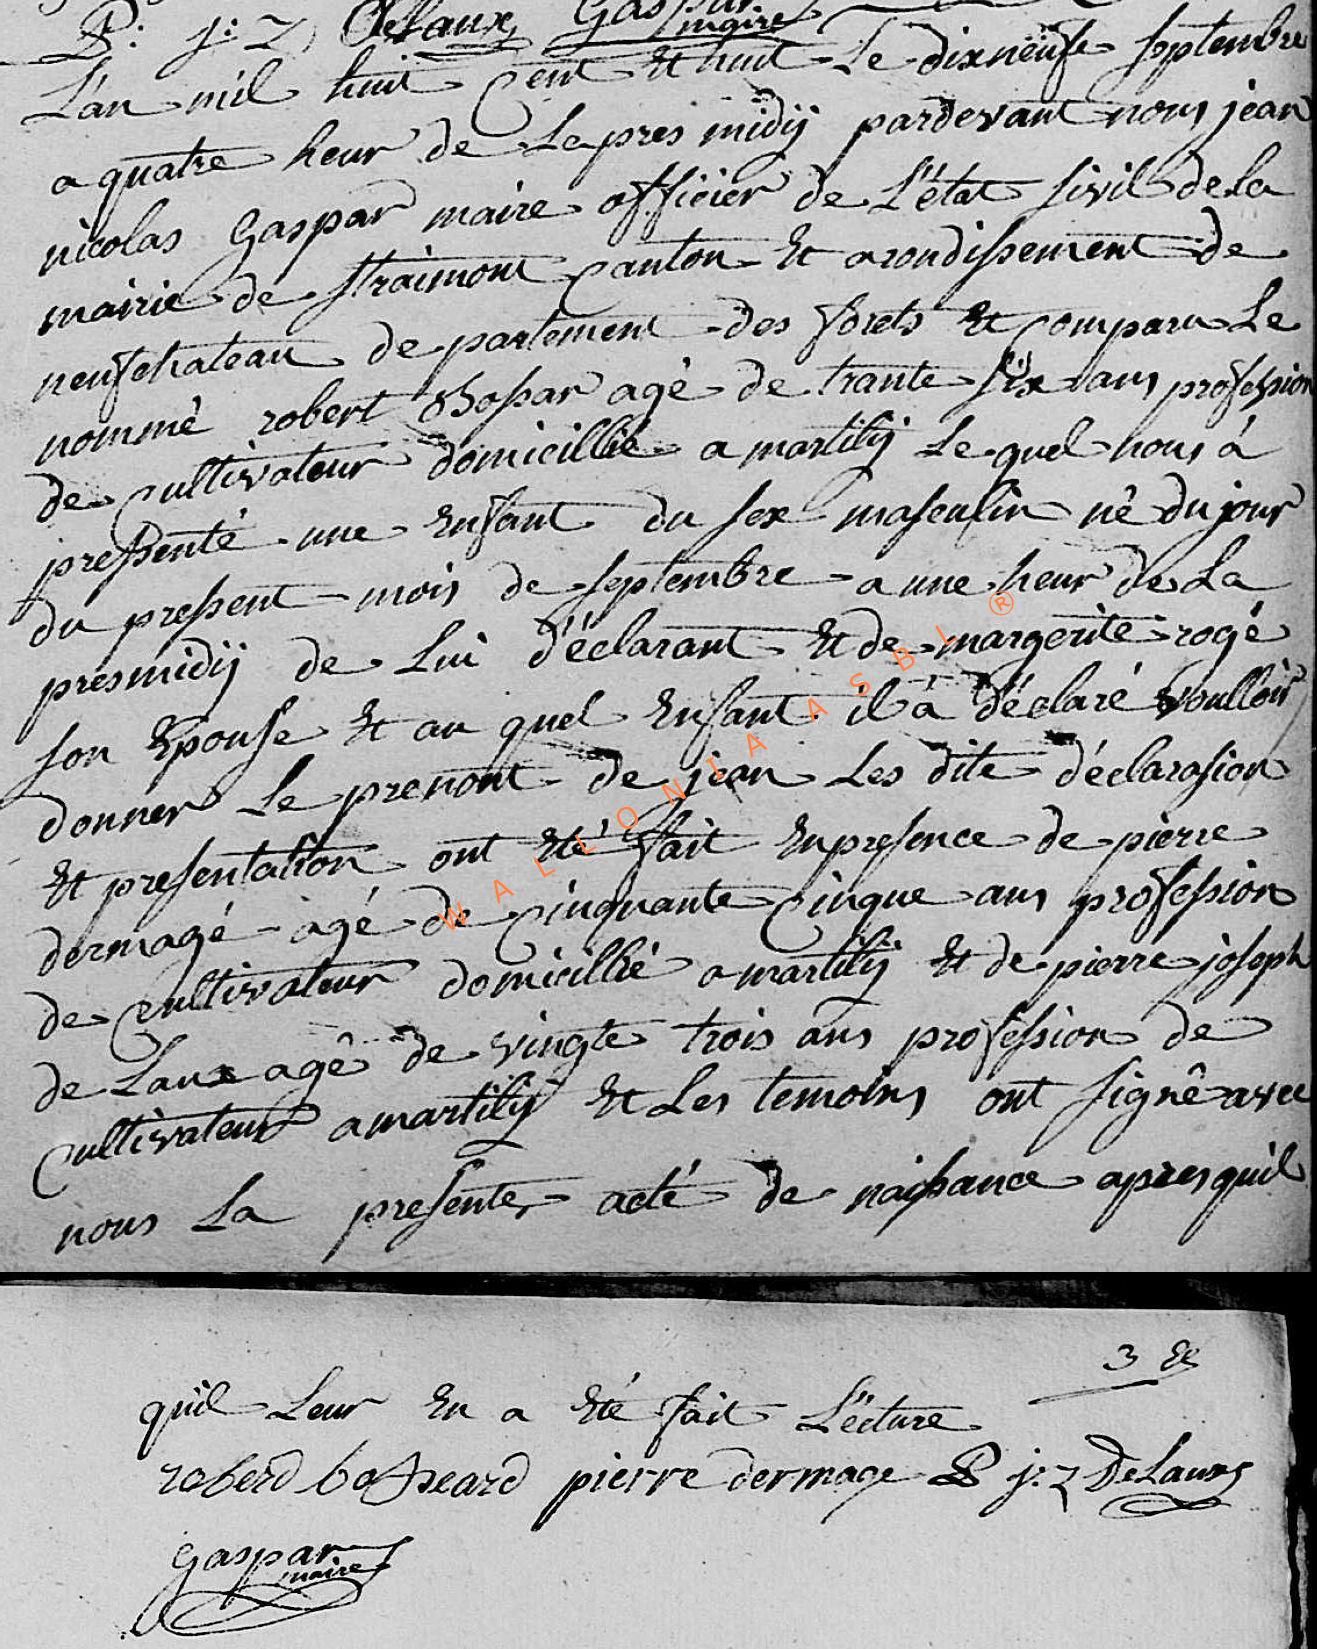 P: j: Z Delaux Gaspar
maire
L'an mil huit Cent Et huit Le dixneufe septembre
a quatre heur de Lapres midij pardevant nous jean
nicolas Gaspar maire officier de L'état sivil de la
mairie de straimont Canton Et arondissement de
neufchateau departement des forets Et Comparu Le
nommé robert Bossar agé de trante six ans profession
de Cultivateur domicillié a martilij Le quel nous à
pressenté une Enfant du sex masculin né du jour
du pressent mois de septembre a une heur de La
presmidij de Lui d'éclarant Et de margerite rogé
son Epouse Et au quel Enfant il à d'éclaré voulloir
donner Le prenomt de jean Les dite déclarasion
Et presentation ont Eté fait En presence de pierre
dermagé agé de Cinquante Cinque ans profession
de Cultivateur domicillié a martilij Et de pierre joseph
de Laux agê de vingte trois ans profession de
Cultivateur a martilij Et Les temoins ont signê avec
nous La presente acté de naissance apres quil
3 
quil Leur En a Eté fait L'écture
roberd bosseard pierre dermage P j: Z DeLaux
gaspar
maire
WALLONIA ASBL ®